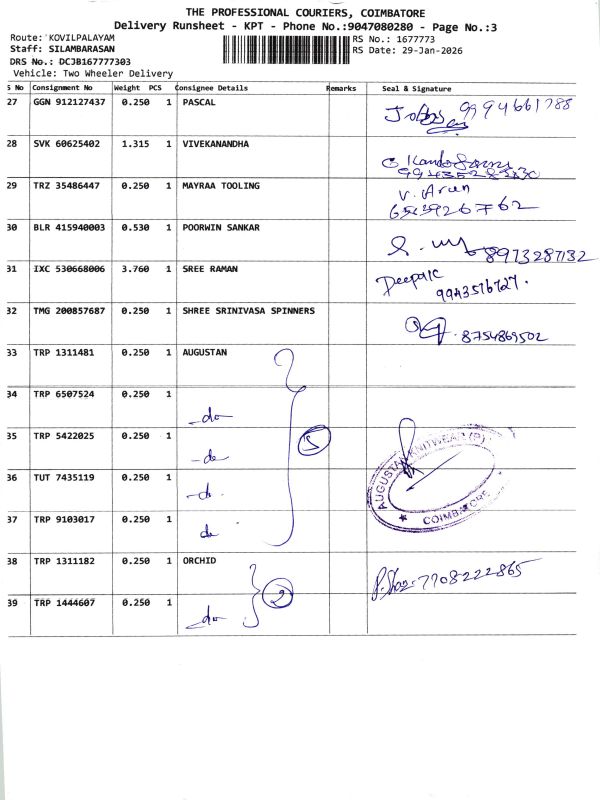 THE PROFESSIONAL COURIERS, COIMBATORE
Delivery Runsheet - KPT - Phone No.:9047080280 - Page No.:3
Route: KOVILPALAYAM
RS No.: 1677773
Staff: SILAMBARASAN
RS Date: 29-Jan-2026
DRS No.: DCJB167777303
Vehicle: Two Wheeler Delivery
S No Consignment No Weight PCS Consignee Details Remarks Seal & Signature
27 GGN 912127437 0.250 1 PASCAL 9994661788
28 SVK 60625402 1.315 1 VIVEKANANDHA
29 TRZ 35486447 0.250 1 MAYRAA TOOLING V. Arun
30 BLR 415940003 0.530 1 POORWIN SANKAR 8973287132
31 IXC 530668006 3.760 1 SREE RAMAN Deepak
9943576727.
32 TMG 200857687 0.250 1 SHREE SRINIVASA SPINNERS 8754869502
33 TRP 1311481 0.250 1 AUGUSTAN
34 TRP 6507524 0.250 1 -do-
35 TRP 5422025 0.250 1 -do- 5 AUGUSTAN KNITWEAR (P)
36 TUT 7435119 0.250 1 -do-
37 TRP 9103017 0.250 1 do COIMBATORE
38 TRP 1311182 0.250 1 ORCHID 2 7708222865
39 TRP 1444607 0.250 1 -do-